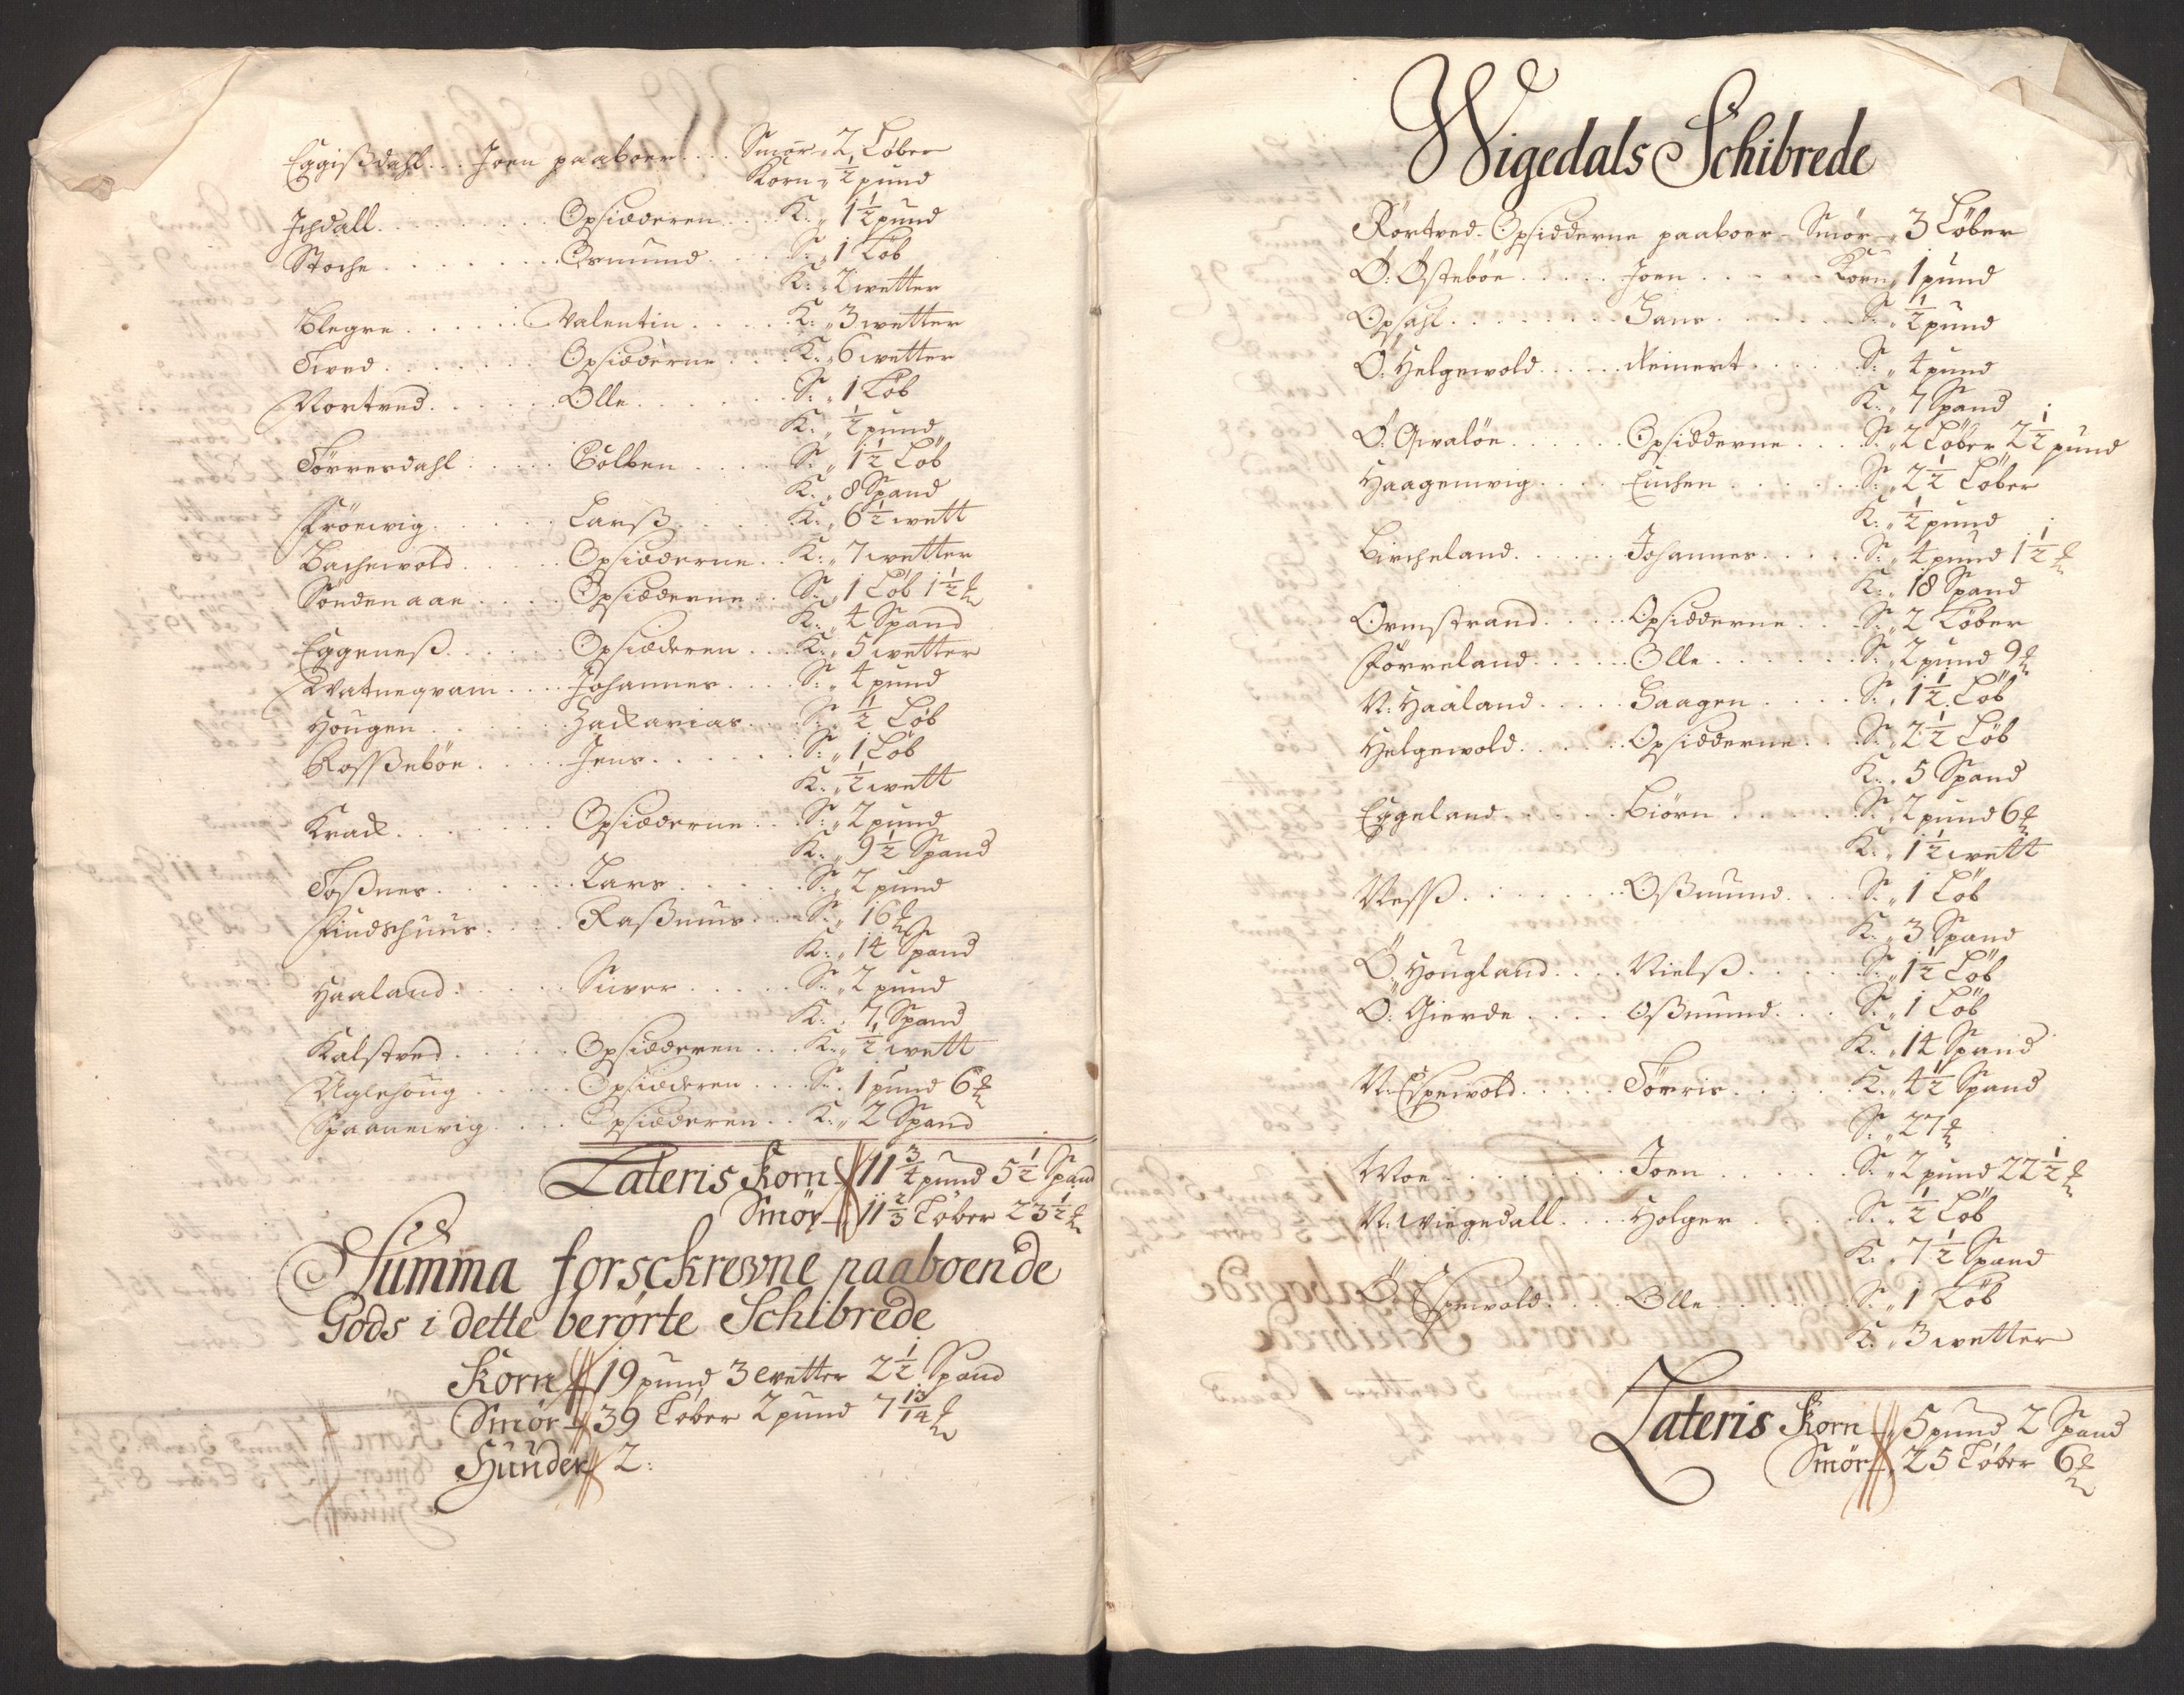 Eggißdahl... Joen paaboer.... Smør„ 2 Løber
Korn„ ½ pund
Ichdall........ Opsidderen.... K: „ 1½ pund
Stoche........ Osmund.... S: „ 1 Løb
K: „ 2 wetter
Blegre...... Valentin.... K: „ 3 wetter
Tved....... Opsidderne.... K: „ 6 wetter
Nortved...... Olle...... S: „ 1 Løb
K: „ ½ pund
Törresdahl..... S: „ 1½ Løb
K: „ 8 Spand
Fröewig...... Larß.... K: „ 6½ wett
Bachewold..... Opsidderne.. K: „ 7 wetter
Söndenaae.... Opsidderne.. S: „ 1 Løb 1½ ℔
K: „ 4 Spand
Eggeneß..... Opsidderen... K: „ 5 wetter
Watneqvam.... Johannes.... S: „ 4 pund
Hougen...... Zackarias... S: „ ½ Løb
Roßeböe..... Jens...... S: „ 1 Løb
K: „ ½ wett
Krack....... Opsidderne.. S: „ 2 pund
K: „ 9½ Spand
Toßnes...... Lars..... S: „ 2 pund
Findshuus.... Raßmus... S: „ 16 ℔
K: „ 14 Spand
Haaland...... Siver..... S: „ 2 pund
K: „ 7 Spand
Kalstved..... Opsidderen... K: „ ½ wett
Uglehoug..... Opsidderen... S: „ 1 pund 6 ℔
Spaanewig.... Opsidderen.. K: „ 2 Spand
Lateris Korn 11¾ pund 5½ Spand
Smør 11⅔ Løber 23½ ℔
Summa forsckrevne paaboende
Gods i dette berørte Schibrede
Korn 19 pund 3 wetter 2½ Spand
Smør 39 Løber 2 pund 7 13/14 ℔
Hunder 2:
Wigedals Schibrede
Rörtved. Opsidderne paaboer - Smør „ 3 Løber
Ö: Östeböe..... Joen..... Korn „ 1 pund
Opsahl....... Hans..... S: „ ½ pund
Ö: Helgewold..... Reinert.... S: „ 4 pund
K: „ 7 Spand
Ö: Qvalöe...... Opsidderne... S: „ 2 Løber 2½ pund
Haagenwig.... Enchen..... S: „ 2½ Løber
K: „ ½ pund
Bircheland...... Johannes.... S: „ 4 pund 1½ ℔
K: „ 18 Spand
Ormstrand..... Opsidderne.. S: „ 2 Løber
Förreland..... Olle...... S: „ 2 pund 9 ℔
N: Haaland..... Haagen.... S: „ 1½ Løb
Helgewold..... Opsidderne.. S: „ 2½ Løb
K: „ 5 Spand
Eggeland..... Biörn..... S: „ 2 pund 6 ℔
K: „ 1½ wett
Neß....... Oßmund.... S: „ 1 Løb
K: „ 3 Spand
Ö„ Hougland.... Nielß.... S: „ 1½ Løb
Ö: Gierde.... Oßmund... S: „ 1 Løb
K: „ 14 Spand
N: Espewold..... Törris.... K: „ 4½ Spand
S: „ 27 ℔
Woe....... Joen..... S: „ 2 pund 22½ ℔
N: Wiegedall.... Holger... S: „ ½ Løb
K: „ 7½ Spand
Ö Espewold.... Olle..... S: „ 1 Løb
K: „ 3 wetter
Lateris Korn „ 5 pund 2 Spand
Smør „ 25 Løber 6 ℔